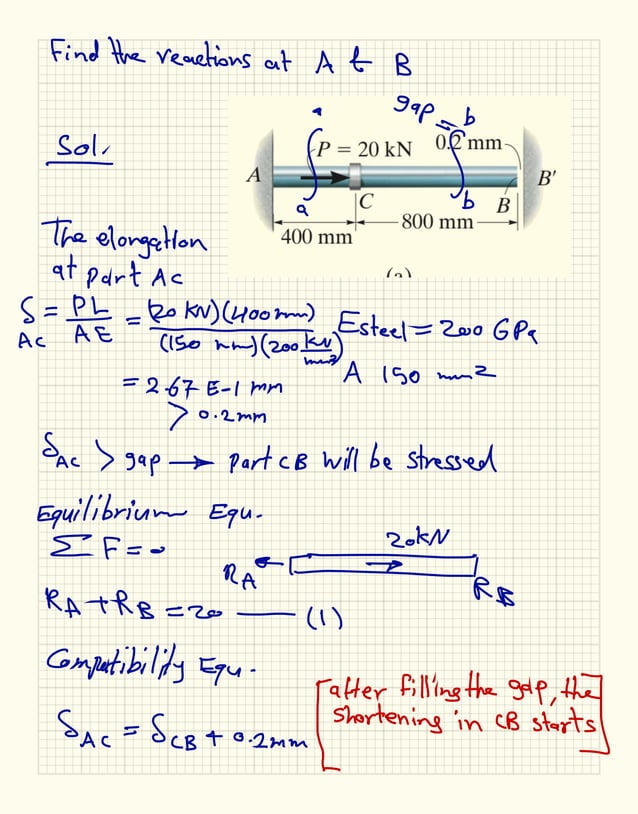 Find the reactions at A & B
Sol.
gap =
a
b
P = 20 kN
0.2 mm
A
B'
a
C
b
B
400 mm
800 mm
(a)
The elongation
at part AC
δAC = PL/AE = (20 kN)(400mm)/(150 mm)(200 kN/mm²)
Esteel = 200 GPa
A 150 mm²
= 2.67 E-1 mm
> 0.2mm
δAC > gap → part CB will be stressed
Equilibrium Equ.
ΣF = 0
20kN
RA
RB
RA + RB = 20 — (1)
Compatibility Equ.
δAC = δCB + 0.2mm
[after filling the gap, the
shortening in CB starts]